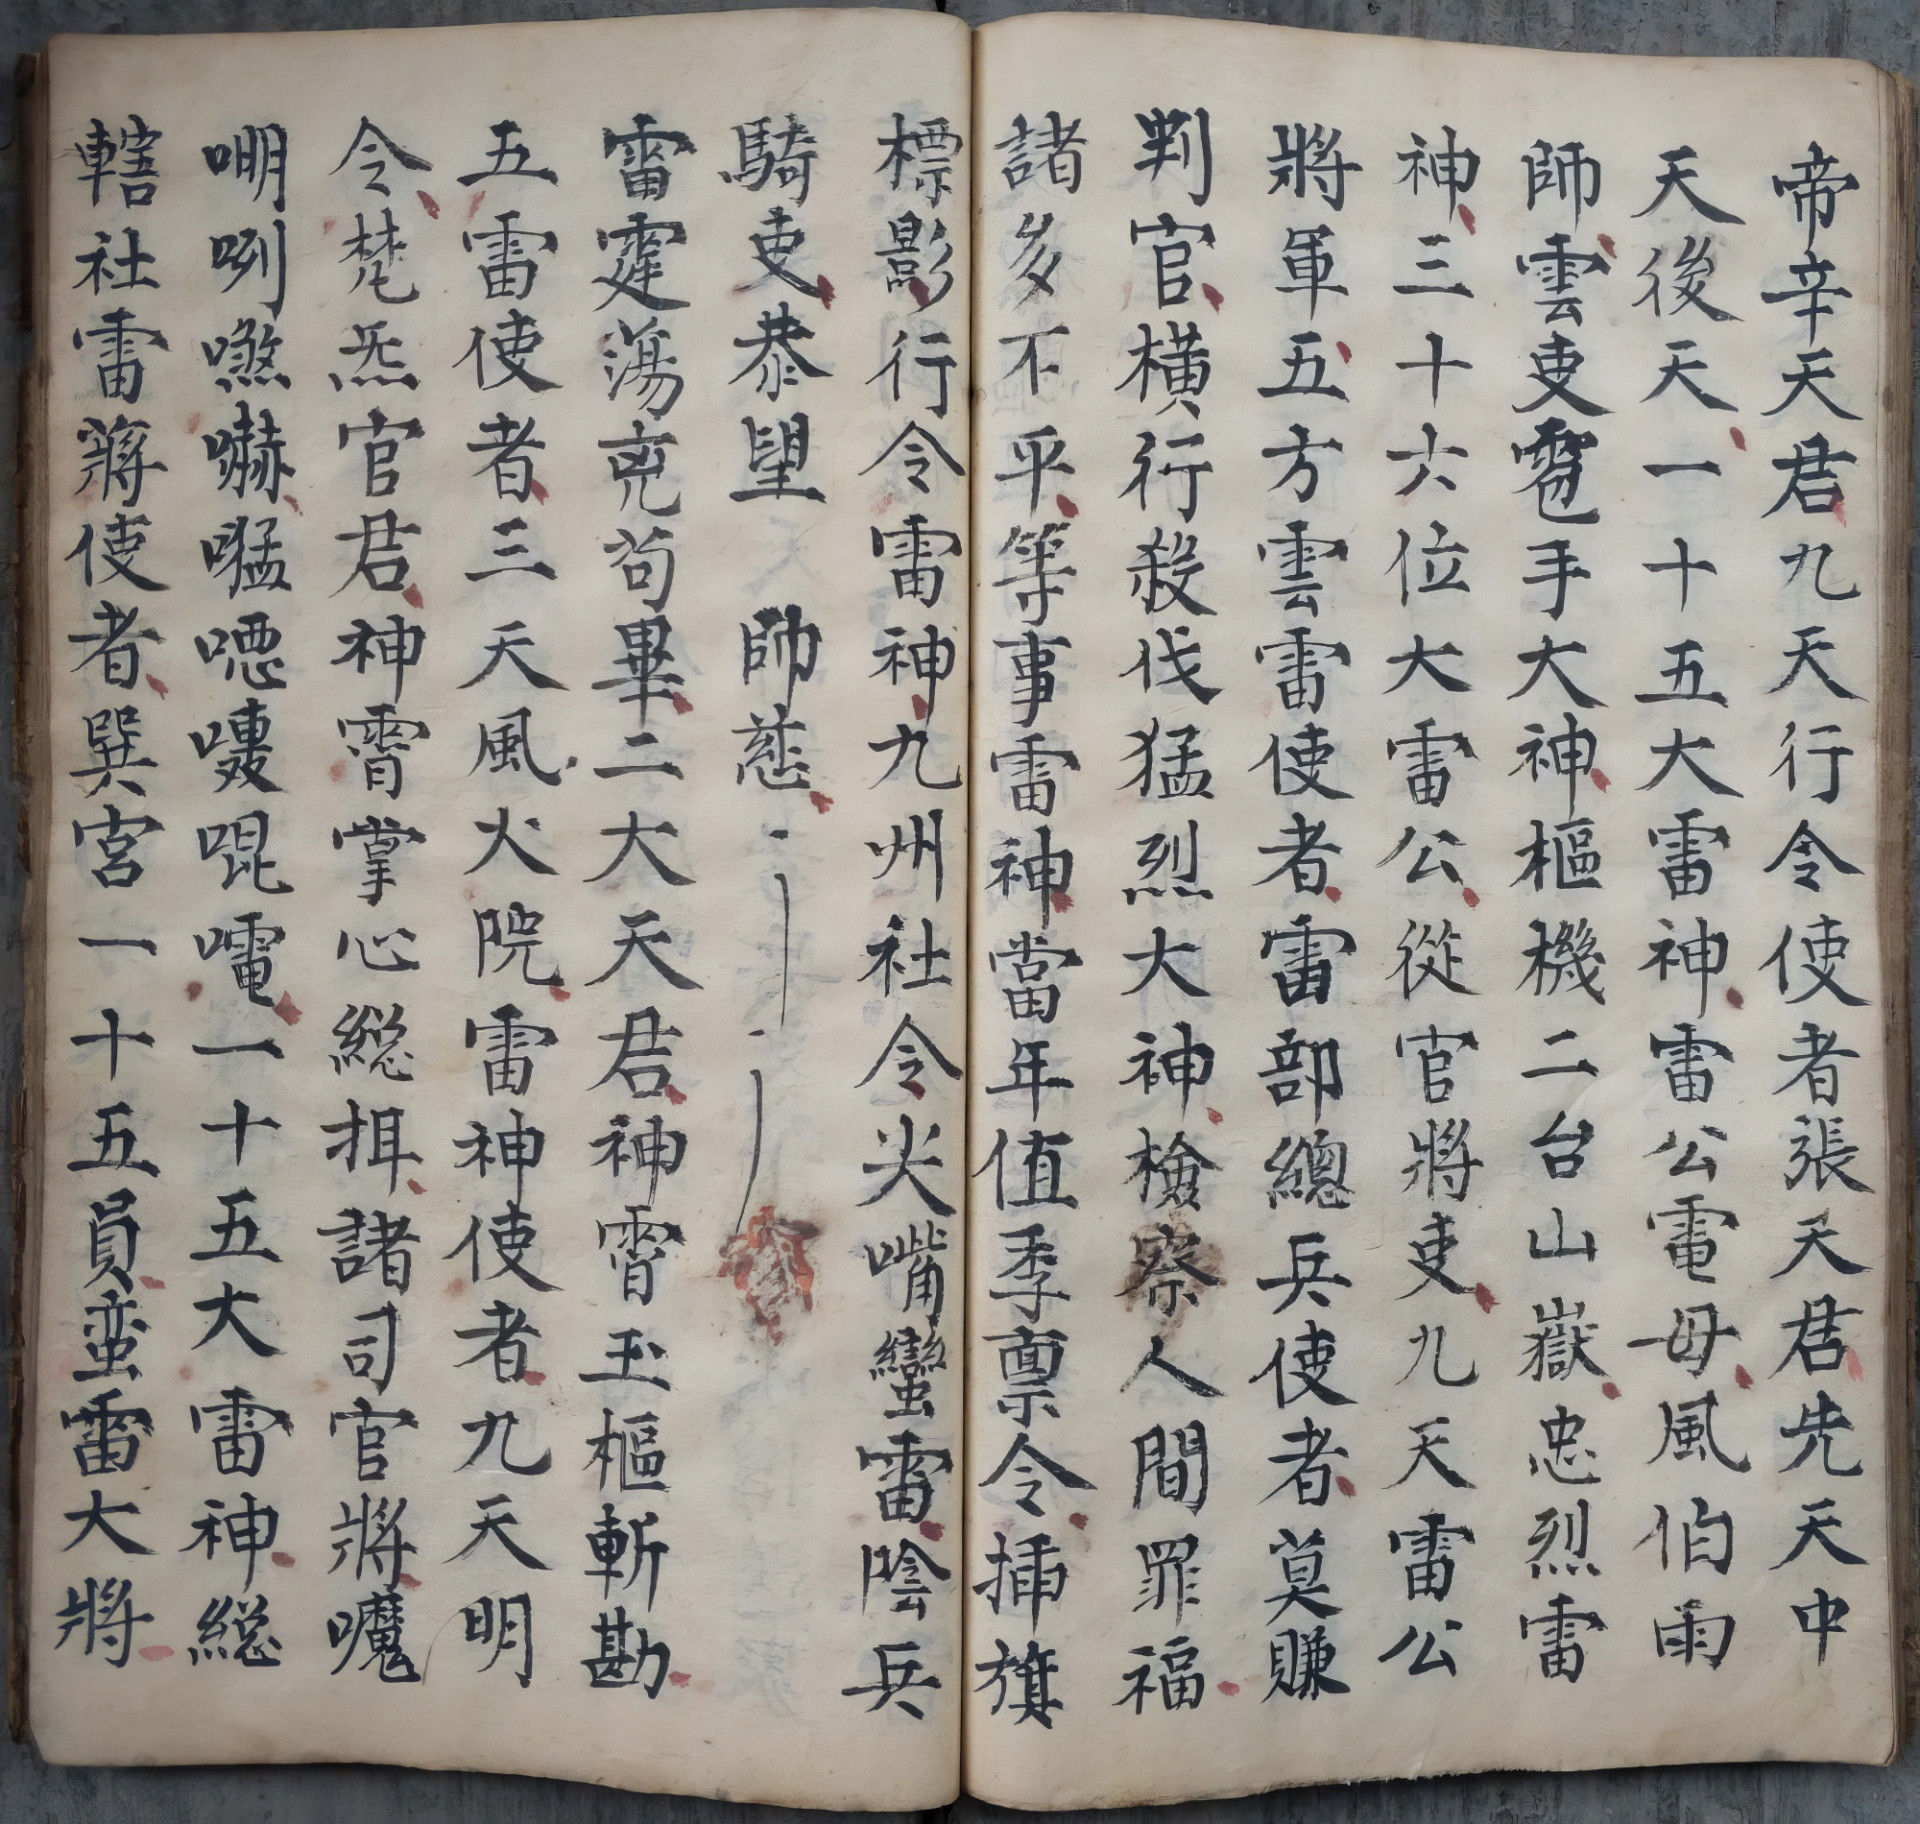 帝辛天君九天行令使者張天君先天中
天後天一十五大雷神雷公電母風伯雨
師雲吏雹手大神樞機二台山嶽忠烈雷
神三十六位大雷公從官將吏九天雷公
將軍五方雲雷使者雷部總兵使者莫賺
判官橫行殺伐猛烈大神檢察人間罪福
諸多不平等事雷神當年值季禀令插旗
標影行令雷神九州社令尖嘴蠻雷陰兵
騎吏恭望 帥慈
雷霆蕩兇苟畢二大天君神霄玉樞斬勘
五雷使者三天風火院雷神使者九天明
令梵炁官君神霄掌心総挕諸司官將囖
嘲咧㷰嚇𠵼嗯嘍啯㘄一十五大雷神総
轄社雷蔣使者巽宮一十五員蛮雷大將